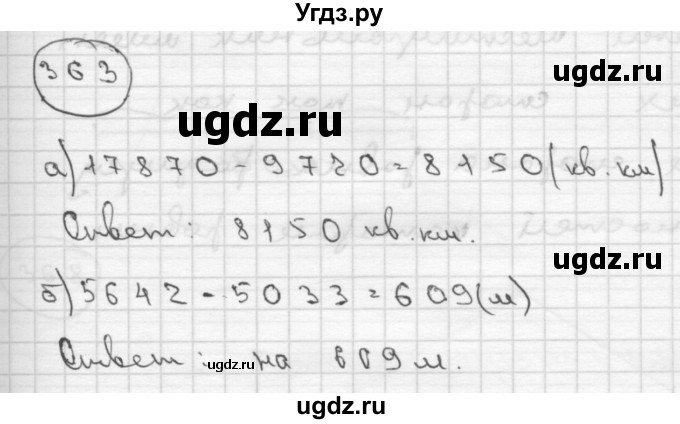 Угдз.ру
363
ugdz.ru
ugdz.ru
а) 17870-9720=8150 (кв.км)
Ответ: 8150 кв.км.
б) 5642-5033=609 (м)
ugdz.ru
Ответ: на 609 м.
ugdz.ru
ugdz.ru